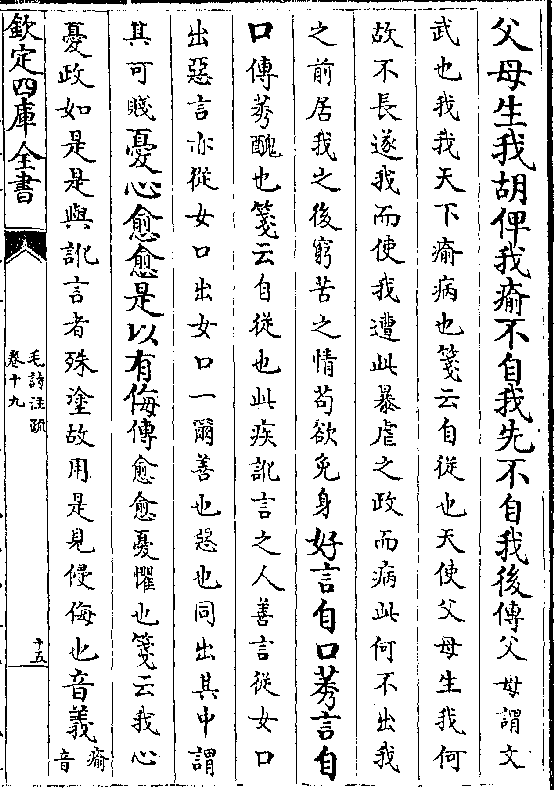 父母生我胡俾我瘉不自我先不自我後傳父母謂文
武也我我天下瘉病也箋云自從也天使父母生我何
故不長遂我而使我遭此暴虐之政而病此何不出我
之前居我之後窮苦之情苟欲免身好言自口莠言自
口傳莠醜也箋云自從也此疾訛言之人善言從女口
出惡言亦從女口出女口一爾善也惡也同出其中謂
其可賤憂心愈愈是以有侮傳愈愈憂懼也箋云我心
憂政如是是與訛言者殊塗故用是見侵侮也音義瘉
音
欽定四庫全書
毛詩注疏
卷十九
十五